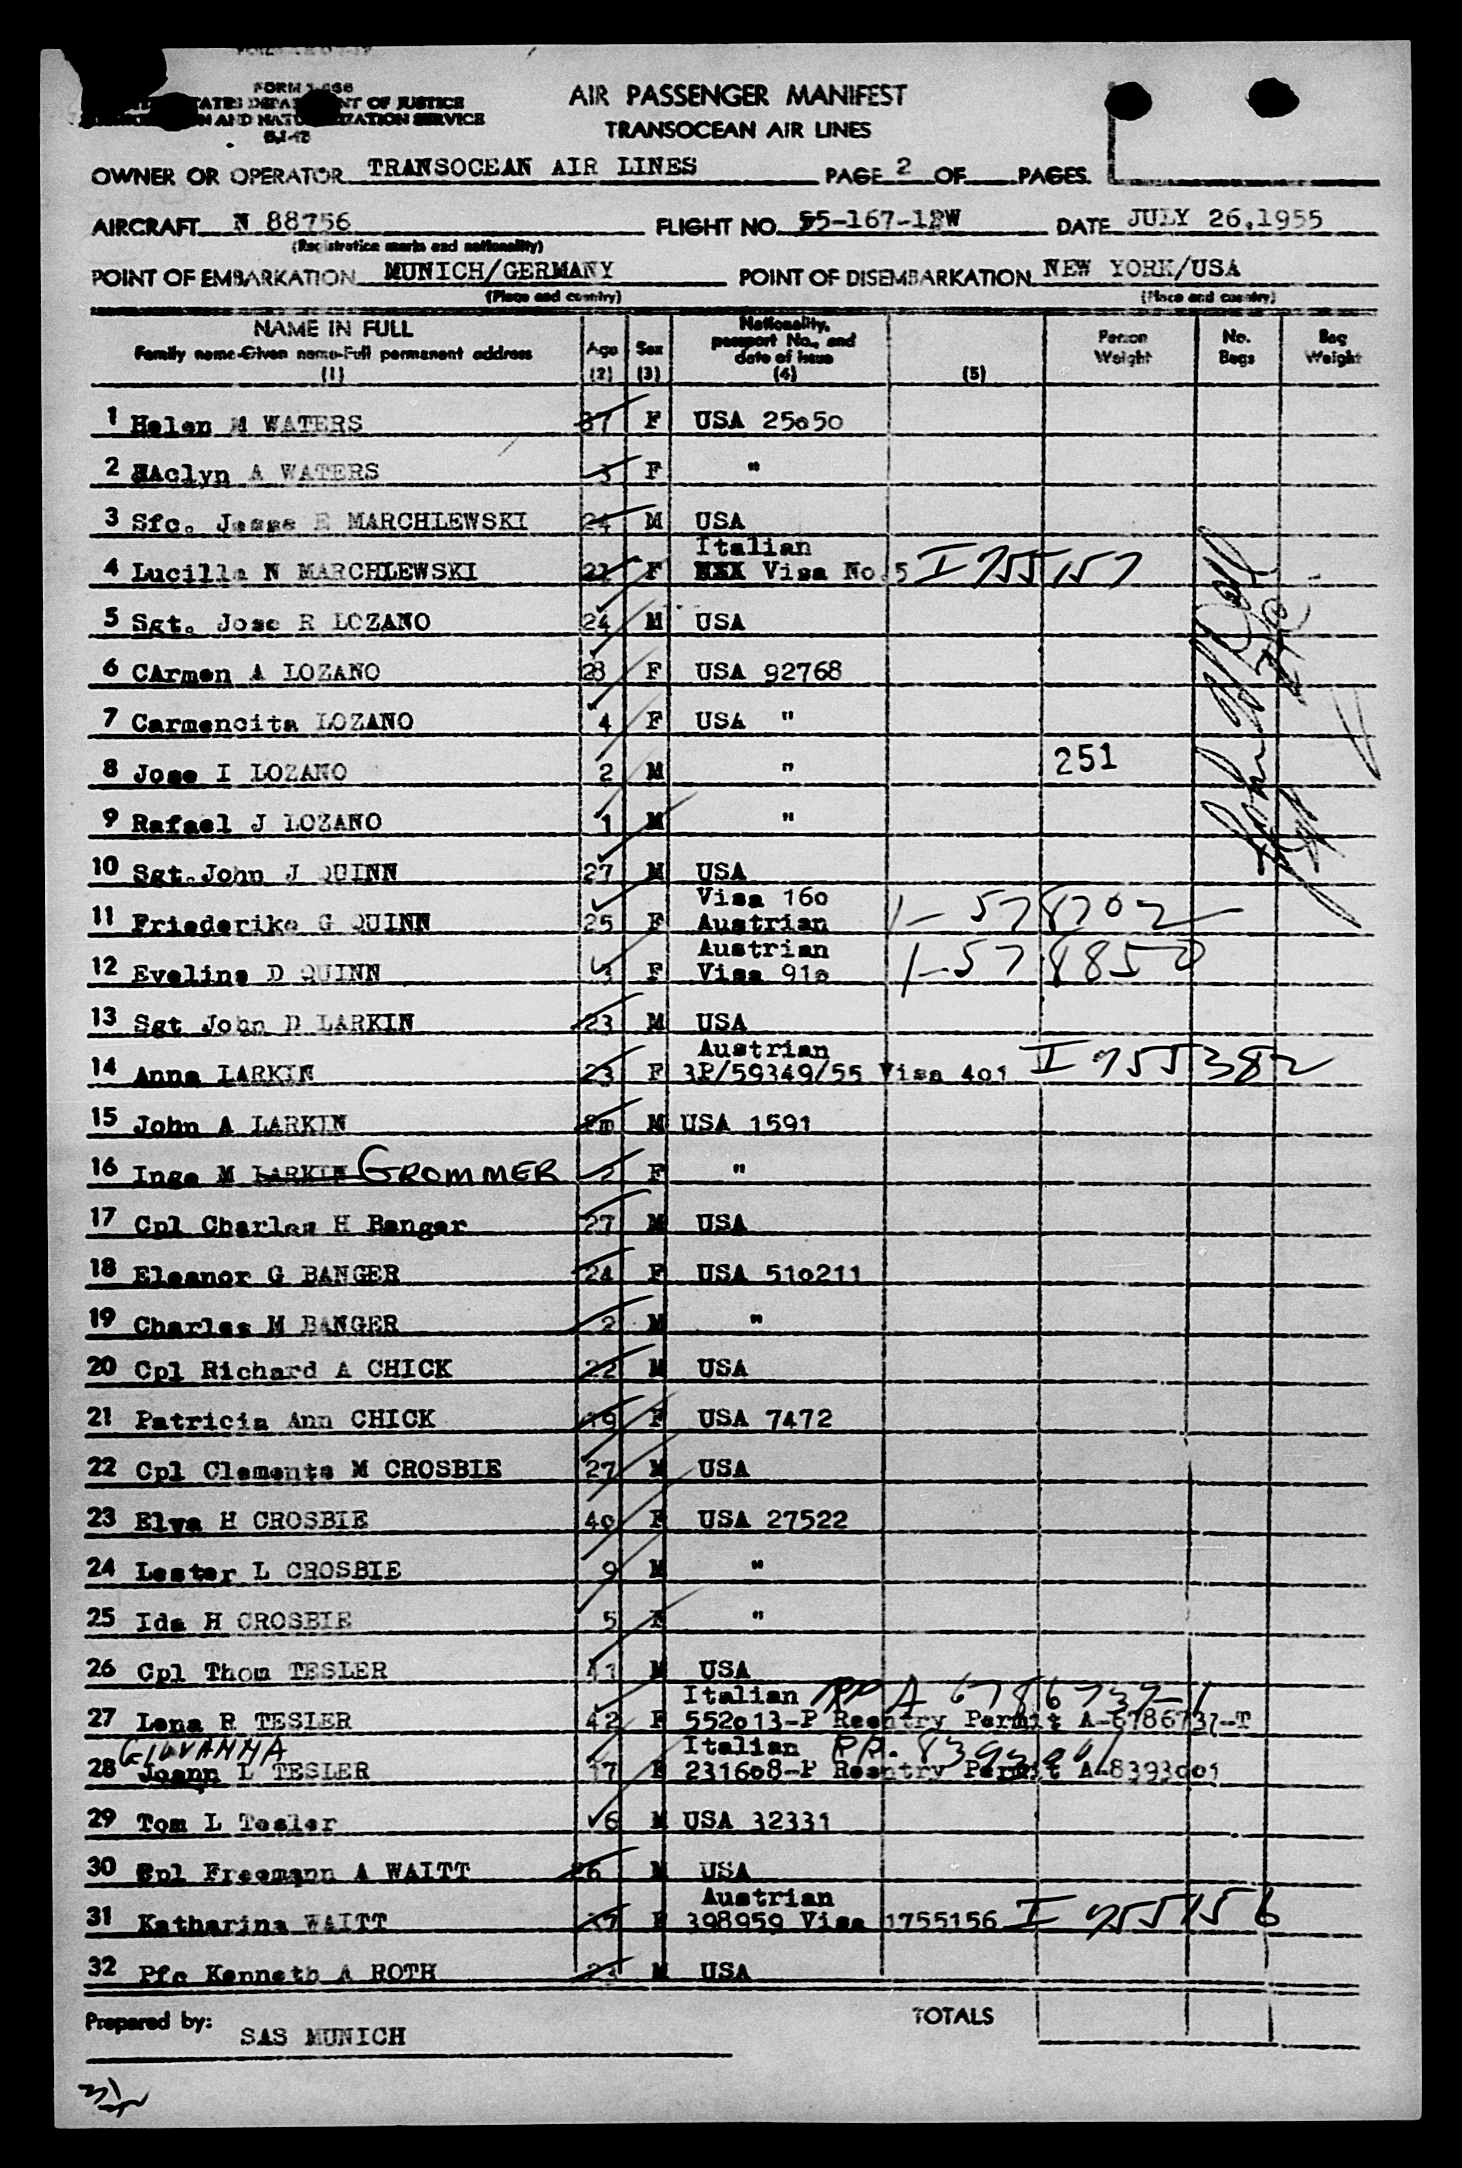 AIR PASSENGER MANIFEST
TRANSOCEAN AIR LINES
OF JUSTICE
AND NATURALIZATION SERVICE
OWNER OR OPERATOR TRANSOCEAN AIR LINES PAGE 2 OF PAGES.
AIRCRAFT N 88756 FLIGHT NO. DATE JULY 26,1955
(Registration marks and nationality)
POINT OF EMBARKATION MUNICH/GERMANY POINT OF DISEMBARKATION NEW YORK/USA
(Place and country) (Place and country)
NAME IN FULL
Family name-Given name-Full permanent address
(1)
Age
(2)
Sex
(3)
Nationality,
passport No., and
date of issue
(4)
(5)
Person
Weight
No.
Bags
Bag
Weight
1 Helen M WATERS 37 F USA 25o50
2 HAclyn A WATERS 3 F "
3 Sfc. Jesse E MARCHLEWSKI 24 M USA
Italian
4 Lucilla N MARCHLEWSKI F Visa No.5 I 755157
5 Sgt. Jose R LOZANO 24 M USA
6 CArmen A LOZANO 28 F USA 92768
7 Carmencita LOZANO 4 F USA "
8 Jose I LOZANO 2 M " 251
9 Rafael J LOZANO 1 M "
10 Sgt.John J QUINN 27 M USA
Visa 16o
11 Friederike G QUINN 25 F Austrian 1-578702
Austrian
12 Eveline D QUINN 3 F Visa 91o 1-578850
13 Sgt John D LARKIN 23 M USA
Austrian
14 Anna LARKIN 23 F 3P/59349/55 Visa 4o1 I 755382
15 John A LARKIN M USA 1591
16 Inge M LARKIN GROMMER 2 F "
17 Cpl Charles H Banger 27 M USA
18 Eleanor G BANGER 24 F USA 51o211
19 Charles M BANGER 2 M "
20 Cpl Richard A CHICK 22 M USA
21 Patricia Ann CHICK 19 F USA 7472
22 Cpl Clements M CROSBIE 27 M USA
23 Elva H CROSBIE 4o F USA 27522
24 Lester L CROSBIE 9 M "
25 Ida H CROSBIE 5 F "
26 Cpl Thom TESLER 41 M USA
Italian PP A 6786737-1
27 Lena R TESLER 42 F 552o13-P Reentry Permit A-6786737-T
GIOVANNA Italian P.P. 8393001
28 Joann L TESLER 17 F 2316o8-P Reentry Permit A-8393oo1
29 Tom L Tesler 6 M USA 32331
30 Cpl Freemann A WAITT 26 M USA
Austrian
31 Katharina WAITT F 398959 Visa 1755156 I 755156
32 Pfc Kenneth A ROTH 23 M USA
Prepared by: SAS MUNICH TOTALS